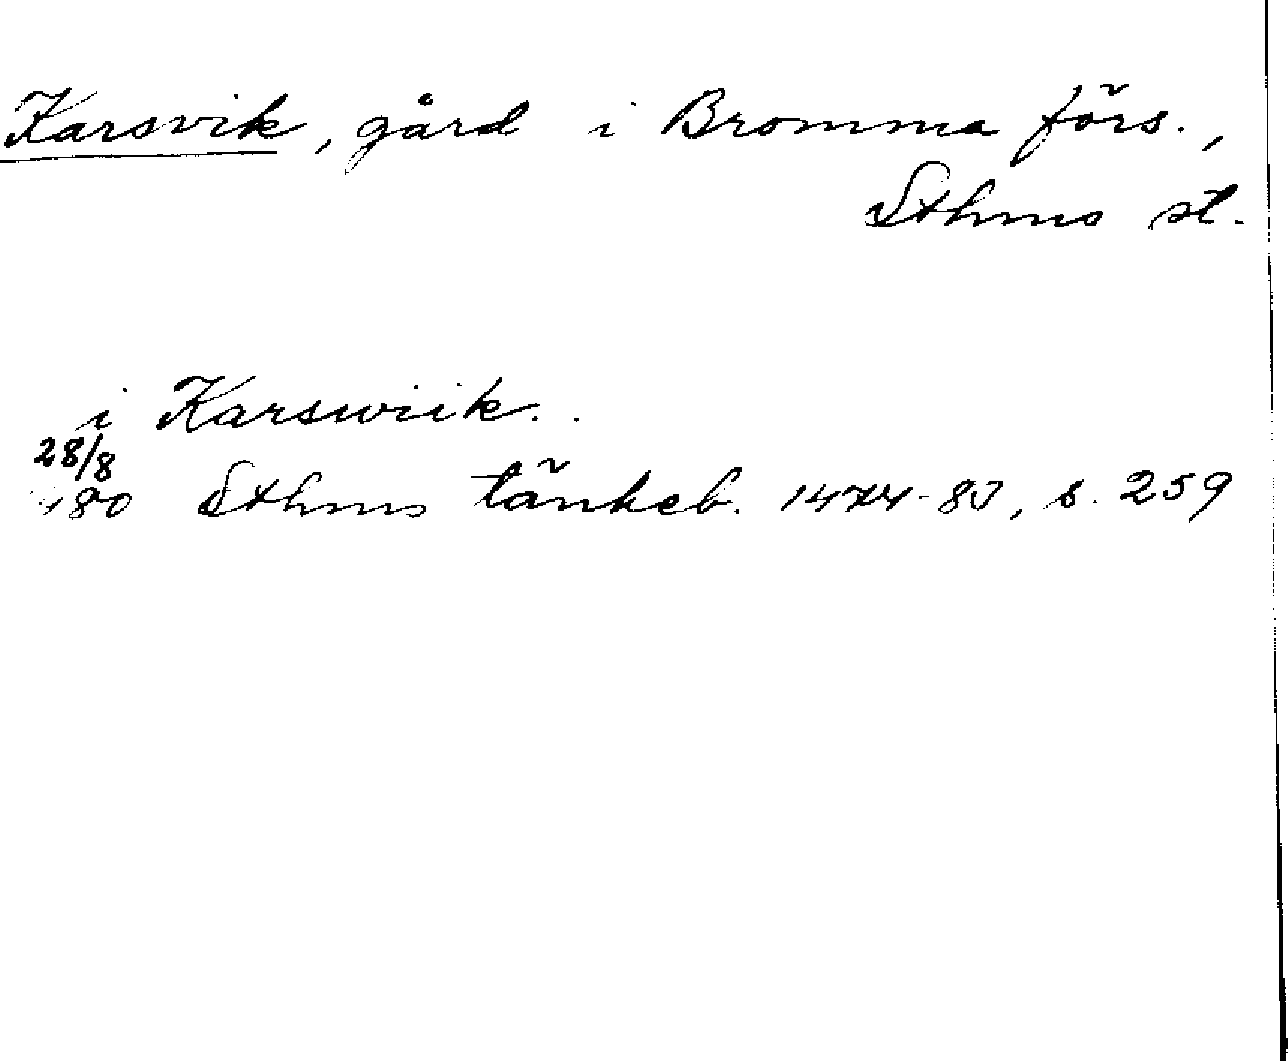 Karsvik, gård i Bromma förs.,
Sthms st.
i Karswiik..
28/8
1480 Sthms tänkeb. 1474-83, s. 259